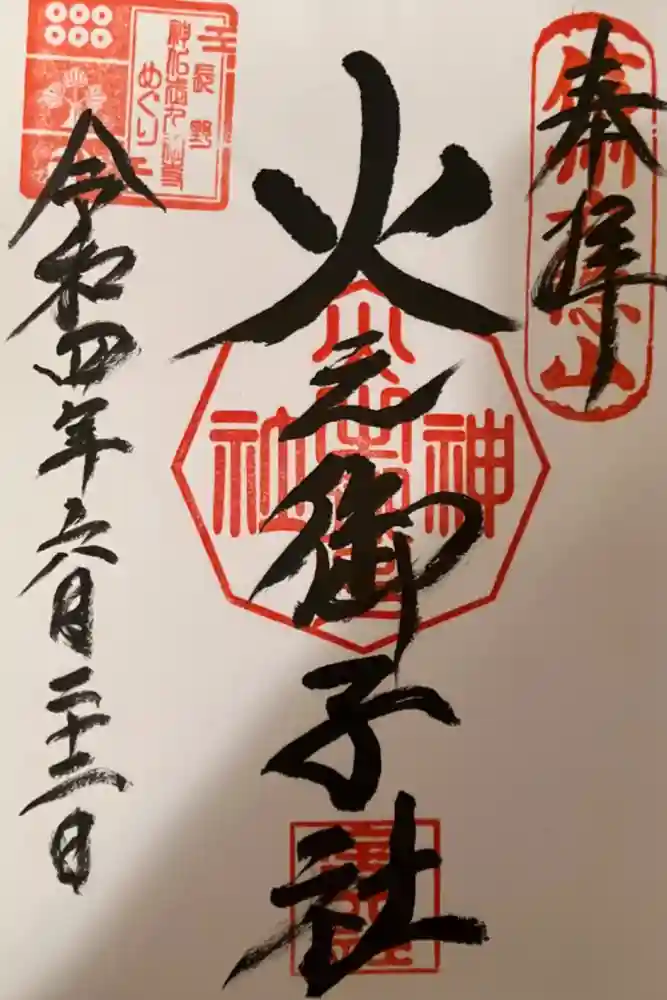 奉拝
火之御子社
令和四年六月二十二日
長野
めぐり
神社